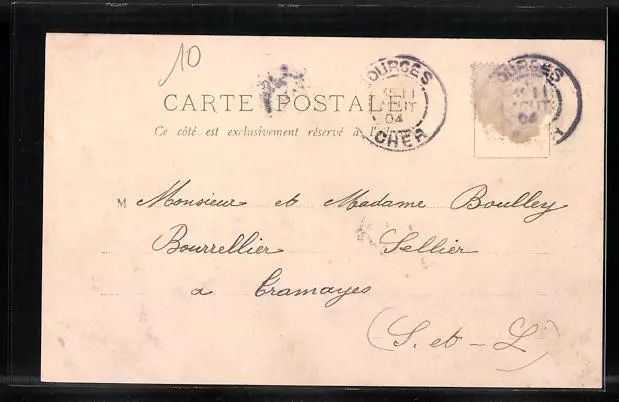 10
CARTE POSTALE
Ce côté est exclusivement réservé à l'adresse
BOURGES
11
AOUT
04
CHER
BOURGES
11
AOUT
04
M Monsieur et Madame Boulley
Bourrellier Sellier
a Cramayes
(S. et - L)